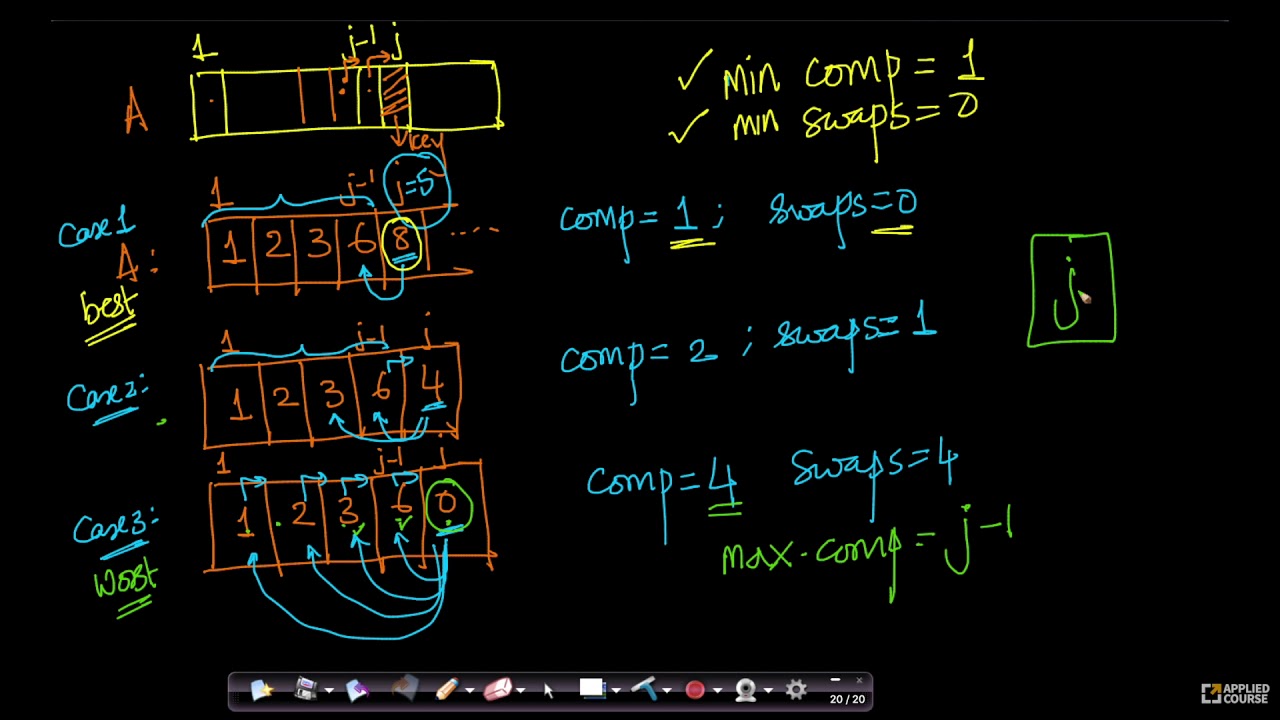 1 j-1 j
A
key
min comp = 1
min swaps = 0
Case 1
1 j-1 j=5
A: 1 2 3 6 8 ....
best
comp = 1 ; swaps = 0
j
Case 2:
1 j-1 j
1 2 3 6 4
comp = 2 ; swaps = 1
Case 3:
1 j-1 j
1 2 3 6 0
worst
comp = 4 swaps = 4
max. comp = j-1
20 / 20
APPLIED
COURSE